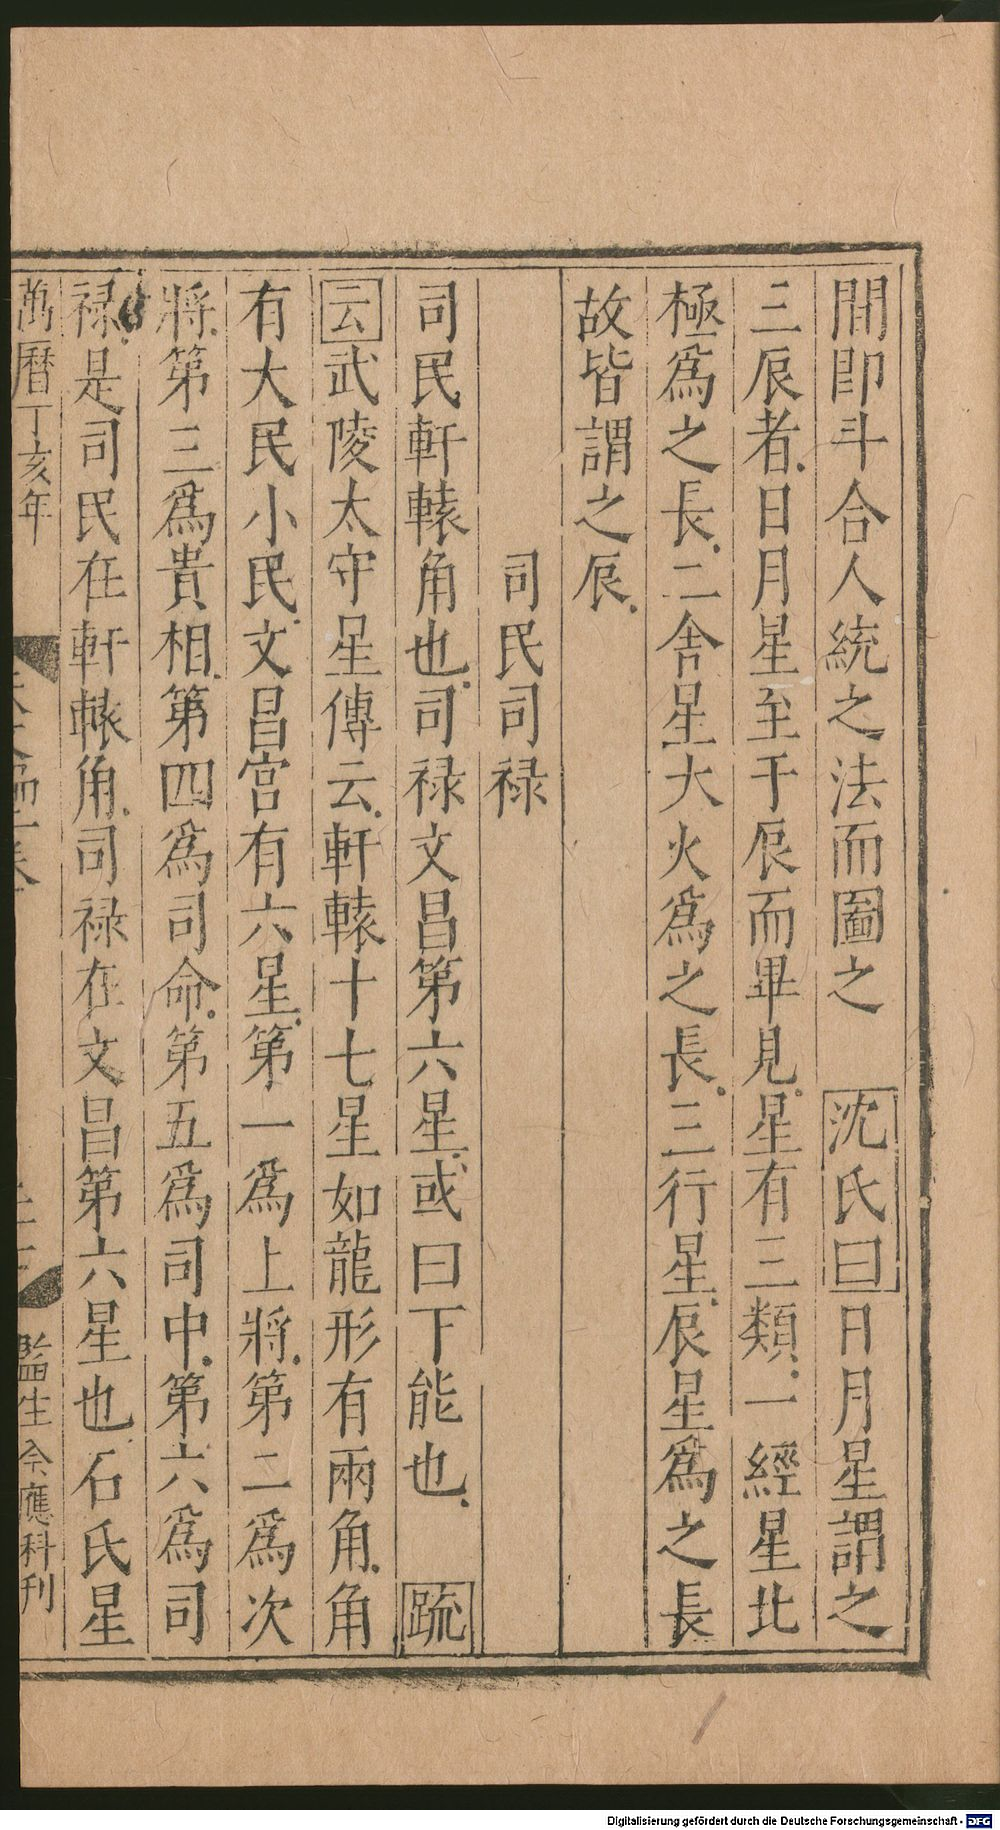 間即斗合人統之法而圖之　沈氏曰日月星謂之
三辰者日月星至于辰而畢見星有三類一經星北
極爲之長二舍星大火爲之長三行星辰星爲之長
故皆謂之辰
司民司禄
司民軒轅角也司禄文昌第六星或曰下能也　疏
云武陵太守星傳云軒轅十七星如龍形有兩角角
有大民小民文昌宫有六星第一爲上將第二爲次
將第三爲貴相第四爲司命第五爲司中第六爲司
禄是司民在軒轅角司禄在文昌第六星也石氏星
萬曆丁亥年
監生　應科刊
Digitalisierung gefördert durch die Deutsche Forschungsgemeinschaft - DFG